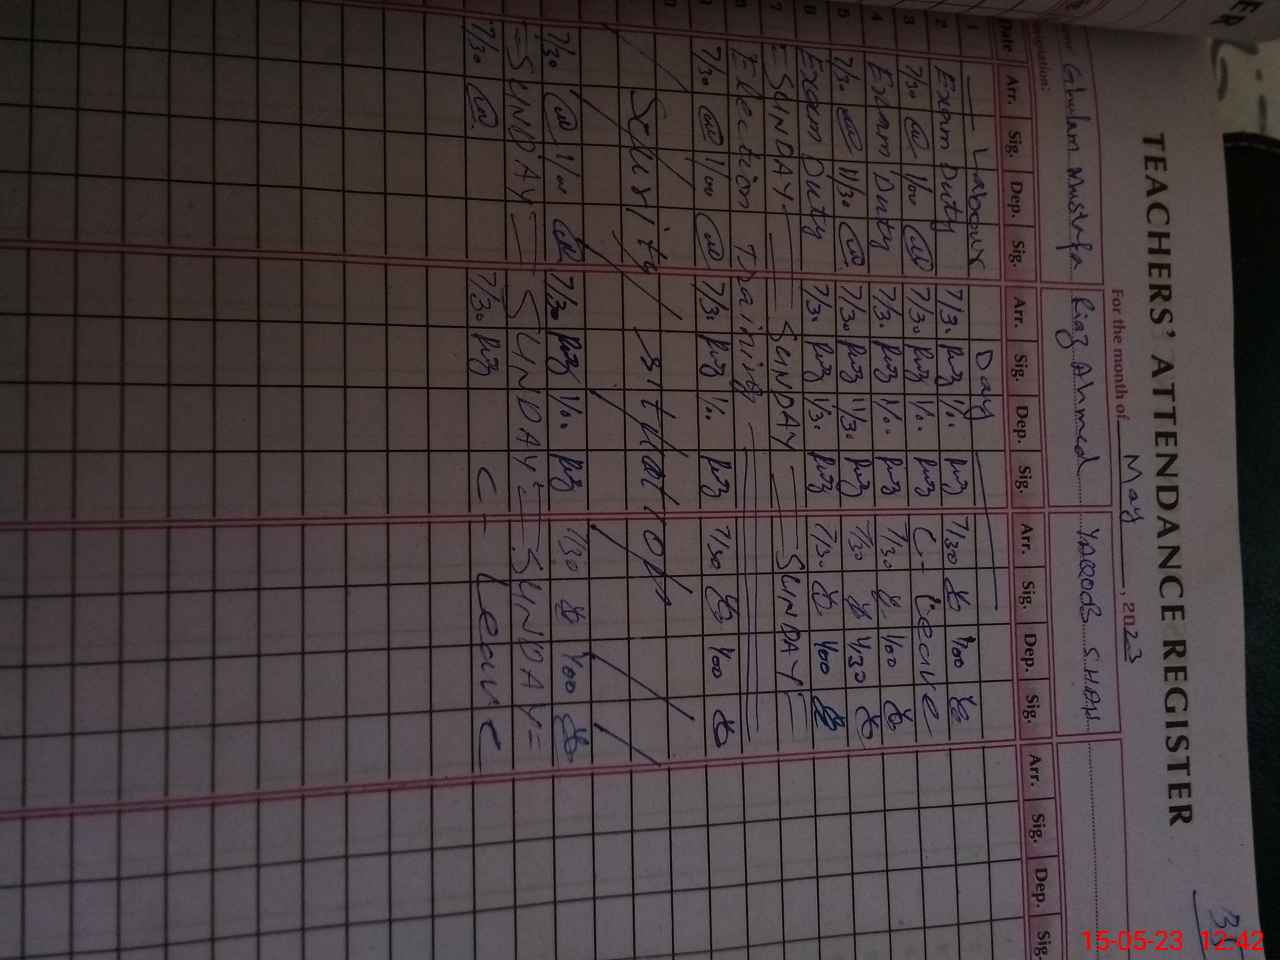 TEACHERS' ATTENDANCE REGISTER
For the month of May, 2023
Ghulam Mustafa Riaz Ahmed YAQOOB SHAH
Date Arr. Sig. Dep. Sig. Arr. Sig. Dep. Sig. Arr. Sig. Dep. Sig. Arr. Sig. Dep. Sig.
1 Labour Day
2 Exam Duty 7/30 1/00 7/30 1/00
3 7/30 1/00 7/30 1/00 C-Leave
4 Exam Duty 7/30 1/00 7/30 1/00
5 7/30 11/30 7/30 11/30 7/30 11/30
6 Exam Duty 7/30 1/30 7/30 1/00
7 =SUNDAY= SUNDAY SUNDAY=
Election Training
9 7/30 1/00 7/30 1/00 7/30 1/00
Security situation
7/30 1/00 7/30 1/00 7/30 1/00
=SUNDAY= SUNDAY= SUNDAY=
7/30 7/30 C-Leave
15-05-23 12:42